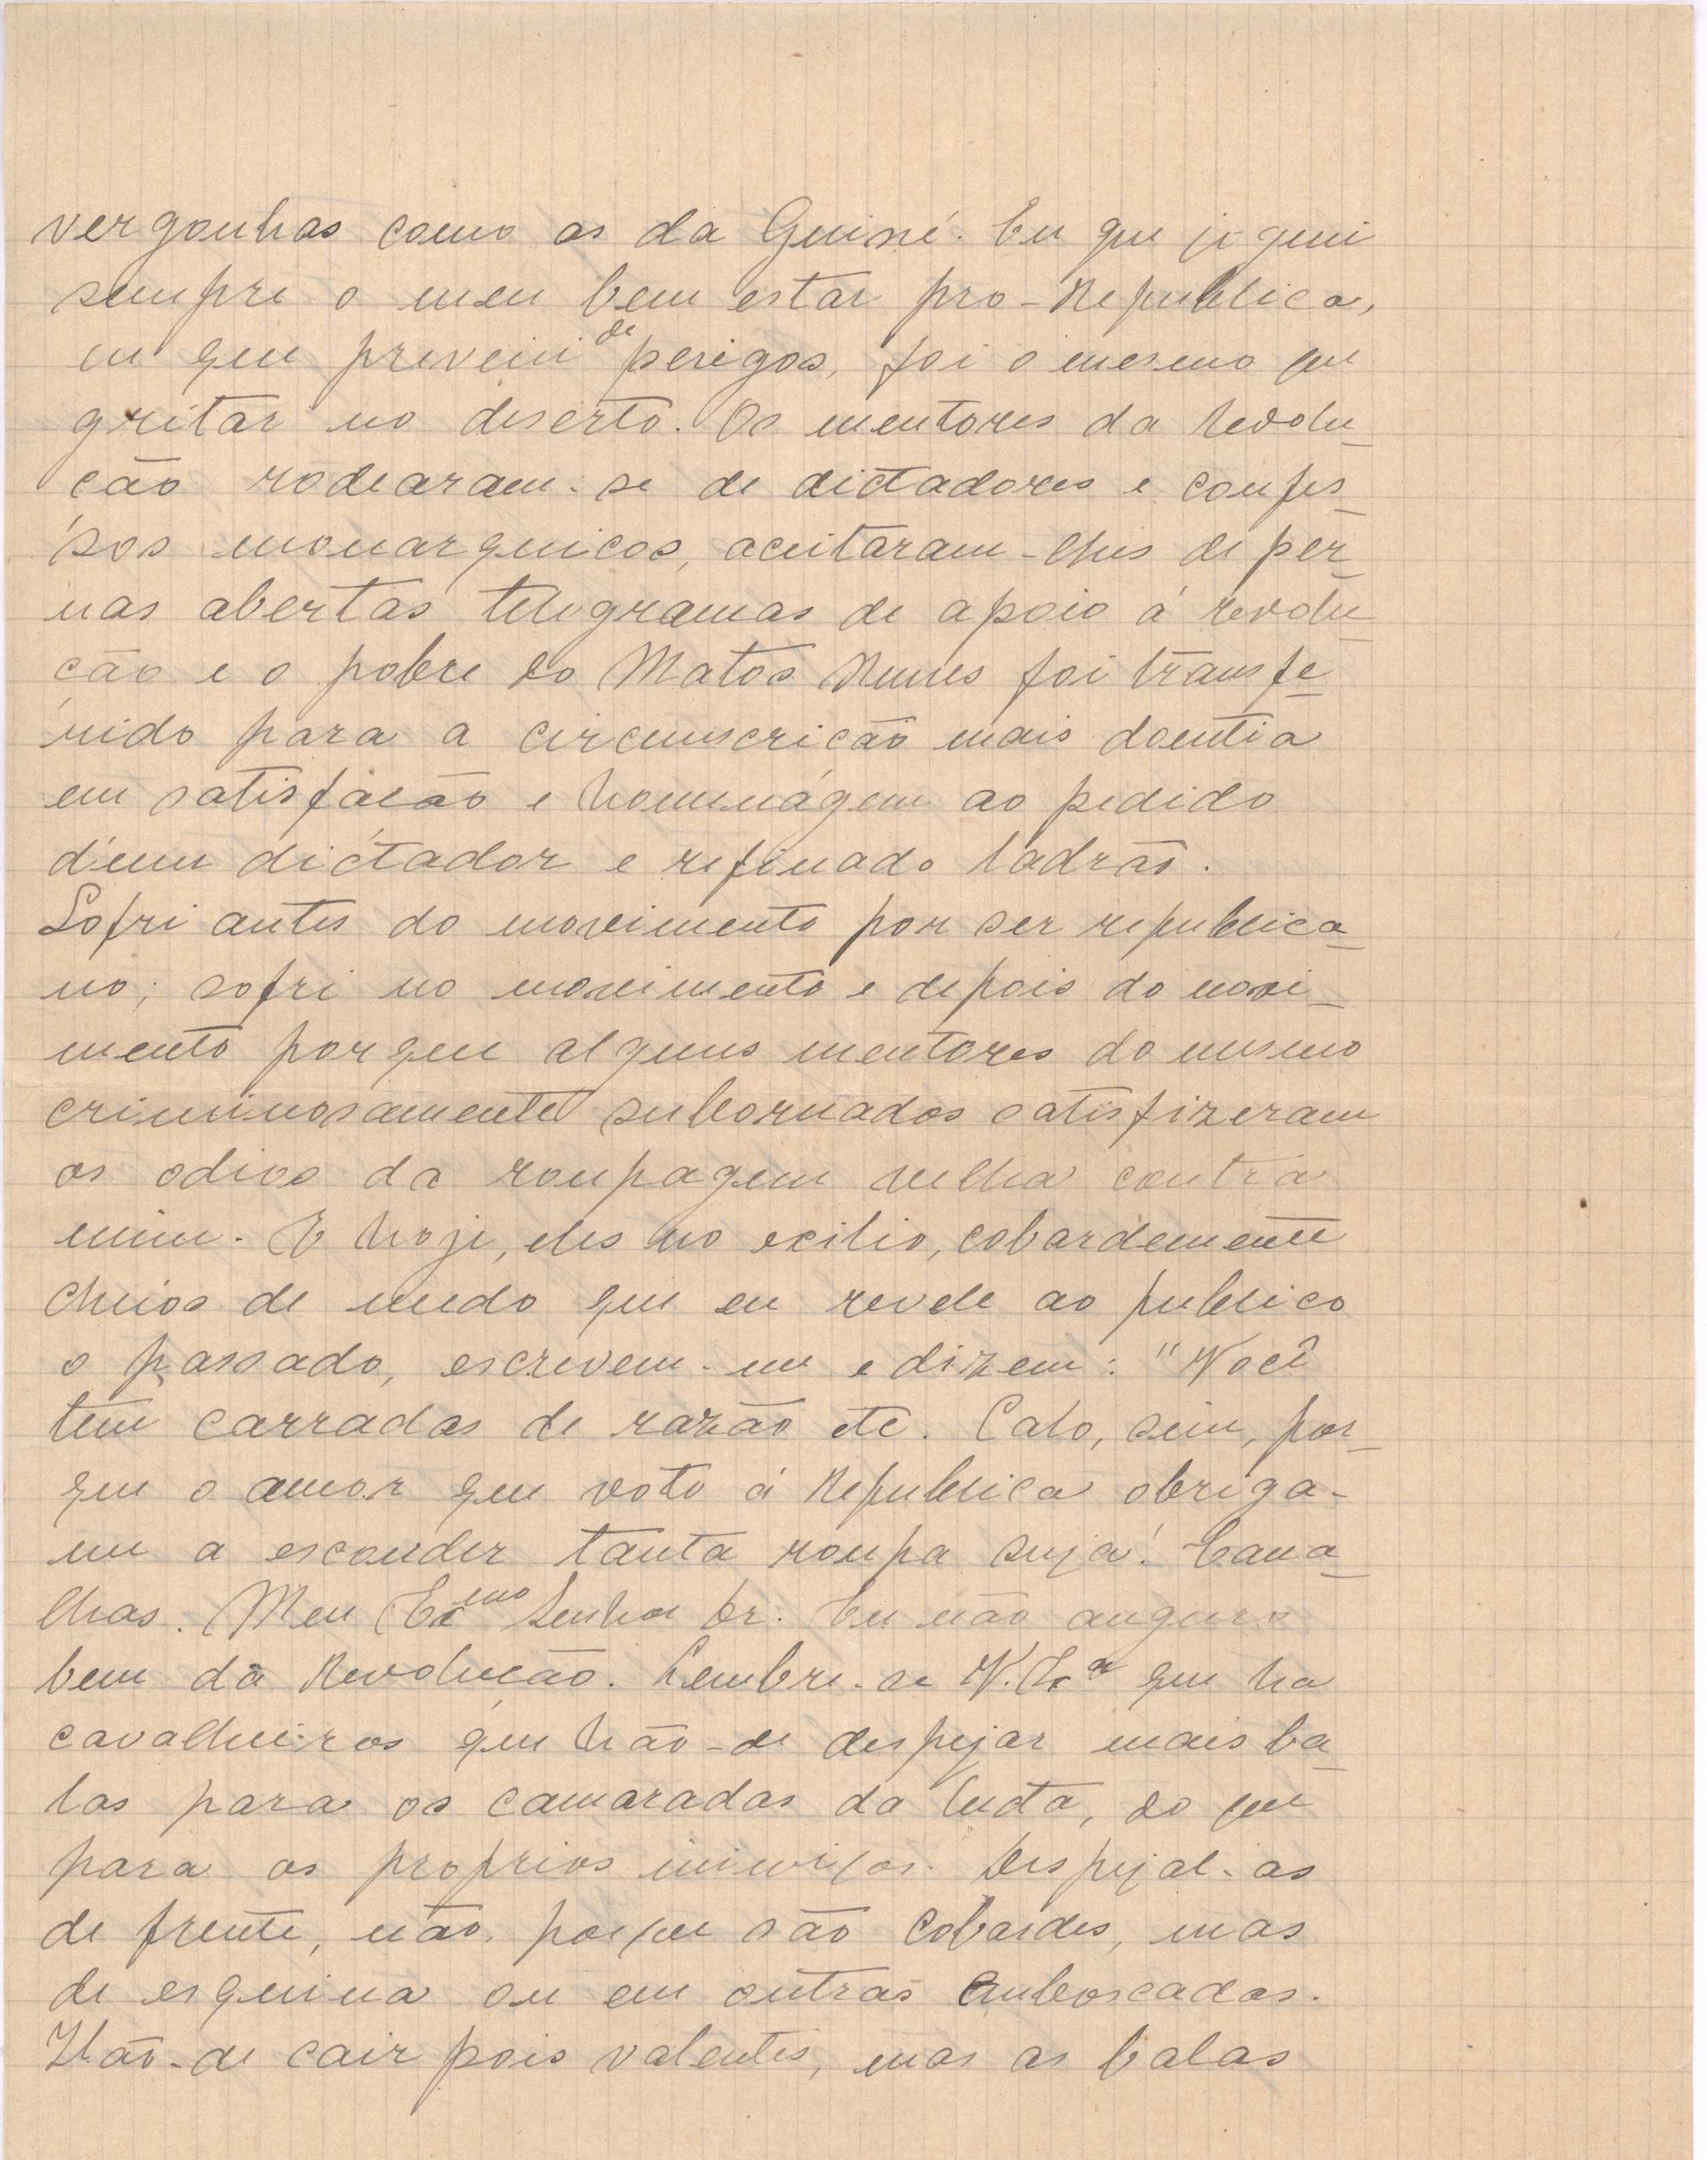 vergonhas como as da Guiné. Eu que joguei
sempre o meu bem estar pro-Republica,
eu que preveni de perigos, foi o mesmo que
gritar no deserto. Os mentores da Revolu-
ção rodearam-se de dictadores e confes-
sos monarquicos, aceitaram-lhes de per-
nas abertas telegramas de apoio á revolu-
ção e o pobre do Matos Nunes foi transfe-
rido para a circunscrição mais doentia
em satisfacão e homenágem ao pedido
d'um dictador e refinado ladrão.
Sofri antes do movimento por ser republica-
no; sofri no movimento e depois do movi-
mento porque alguns mentores do mesmo
criminosamente subornados satisfizeram
os odios da roupagem velha contra
mim. E hoje, eles no exilio, cobardemente
cheios de medo que eu revele ao publico
o passado, escrevem-me e dizem: "Você
tem carradas de razão etc. Calo, sim, por-
que o amor que voto á Republica obriga-
me a esconder tanta roupa suja! Cana-
lhas. Meu Exmo Senhor Dr. Eu não auguro
bem da Revolucão. Lembre-se V. Exa que ha
cavalheiros que hão-de despejar mais ba-
las para os camaradas da luta, do que
para os proprios inimigos. Despejal-as
de frente, não, porque são cobardes, mas
de esquina ou em outras emboscadas.
Hão-de cair pois valentes, mas as balas